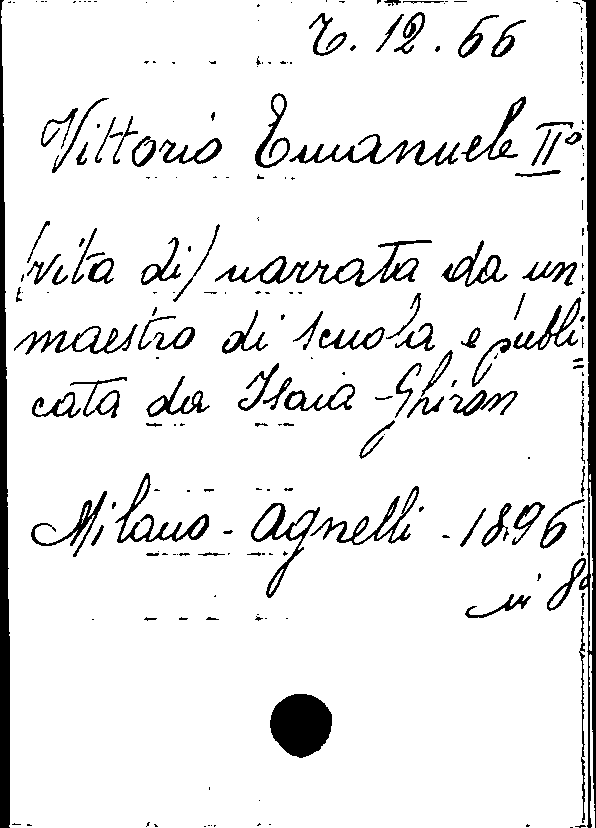 7.12.66
Vittorio Emanuele IIº
(vita di) narrata da un
maestro di scuola e pubbli=
cata da Isaia Ghiron
Milano - Agnelli - 1896
in 8º